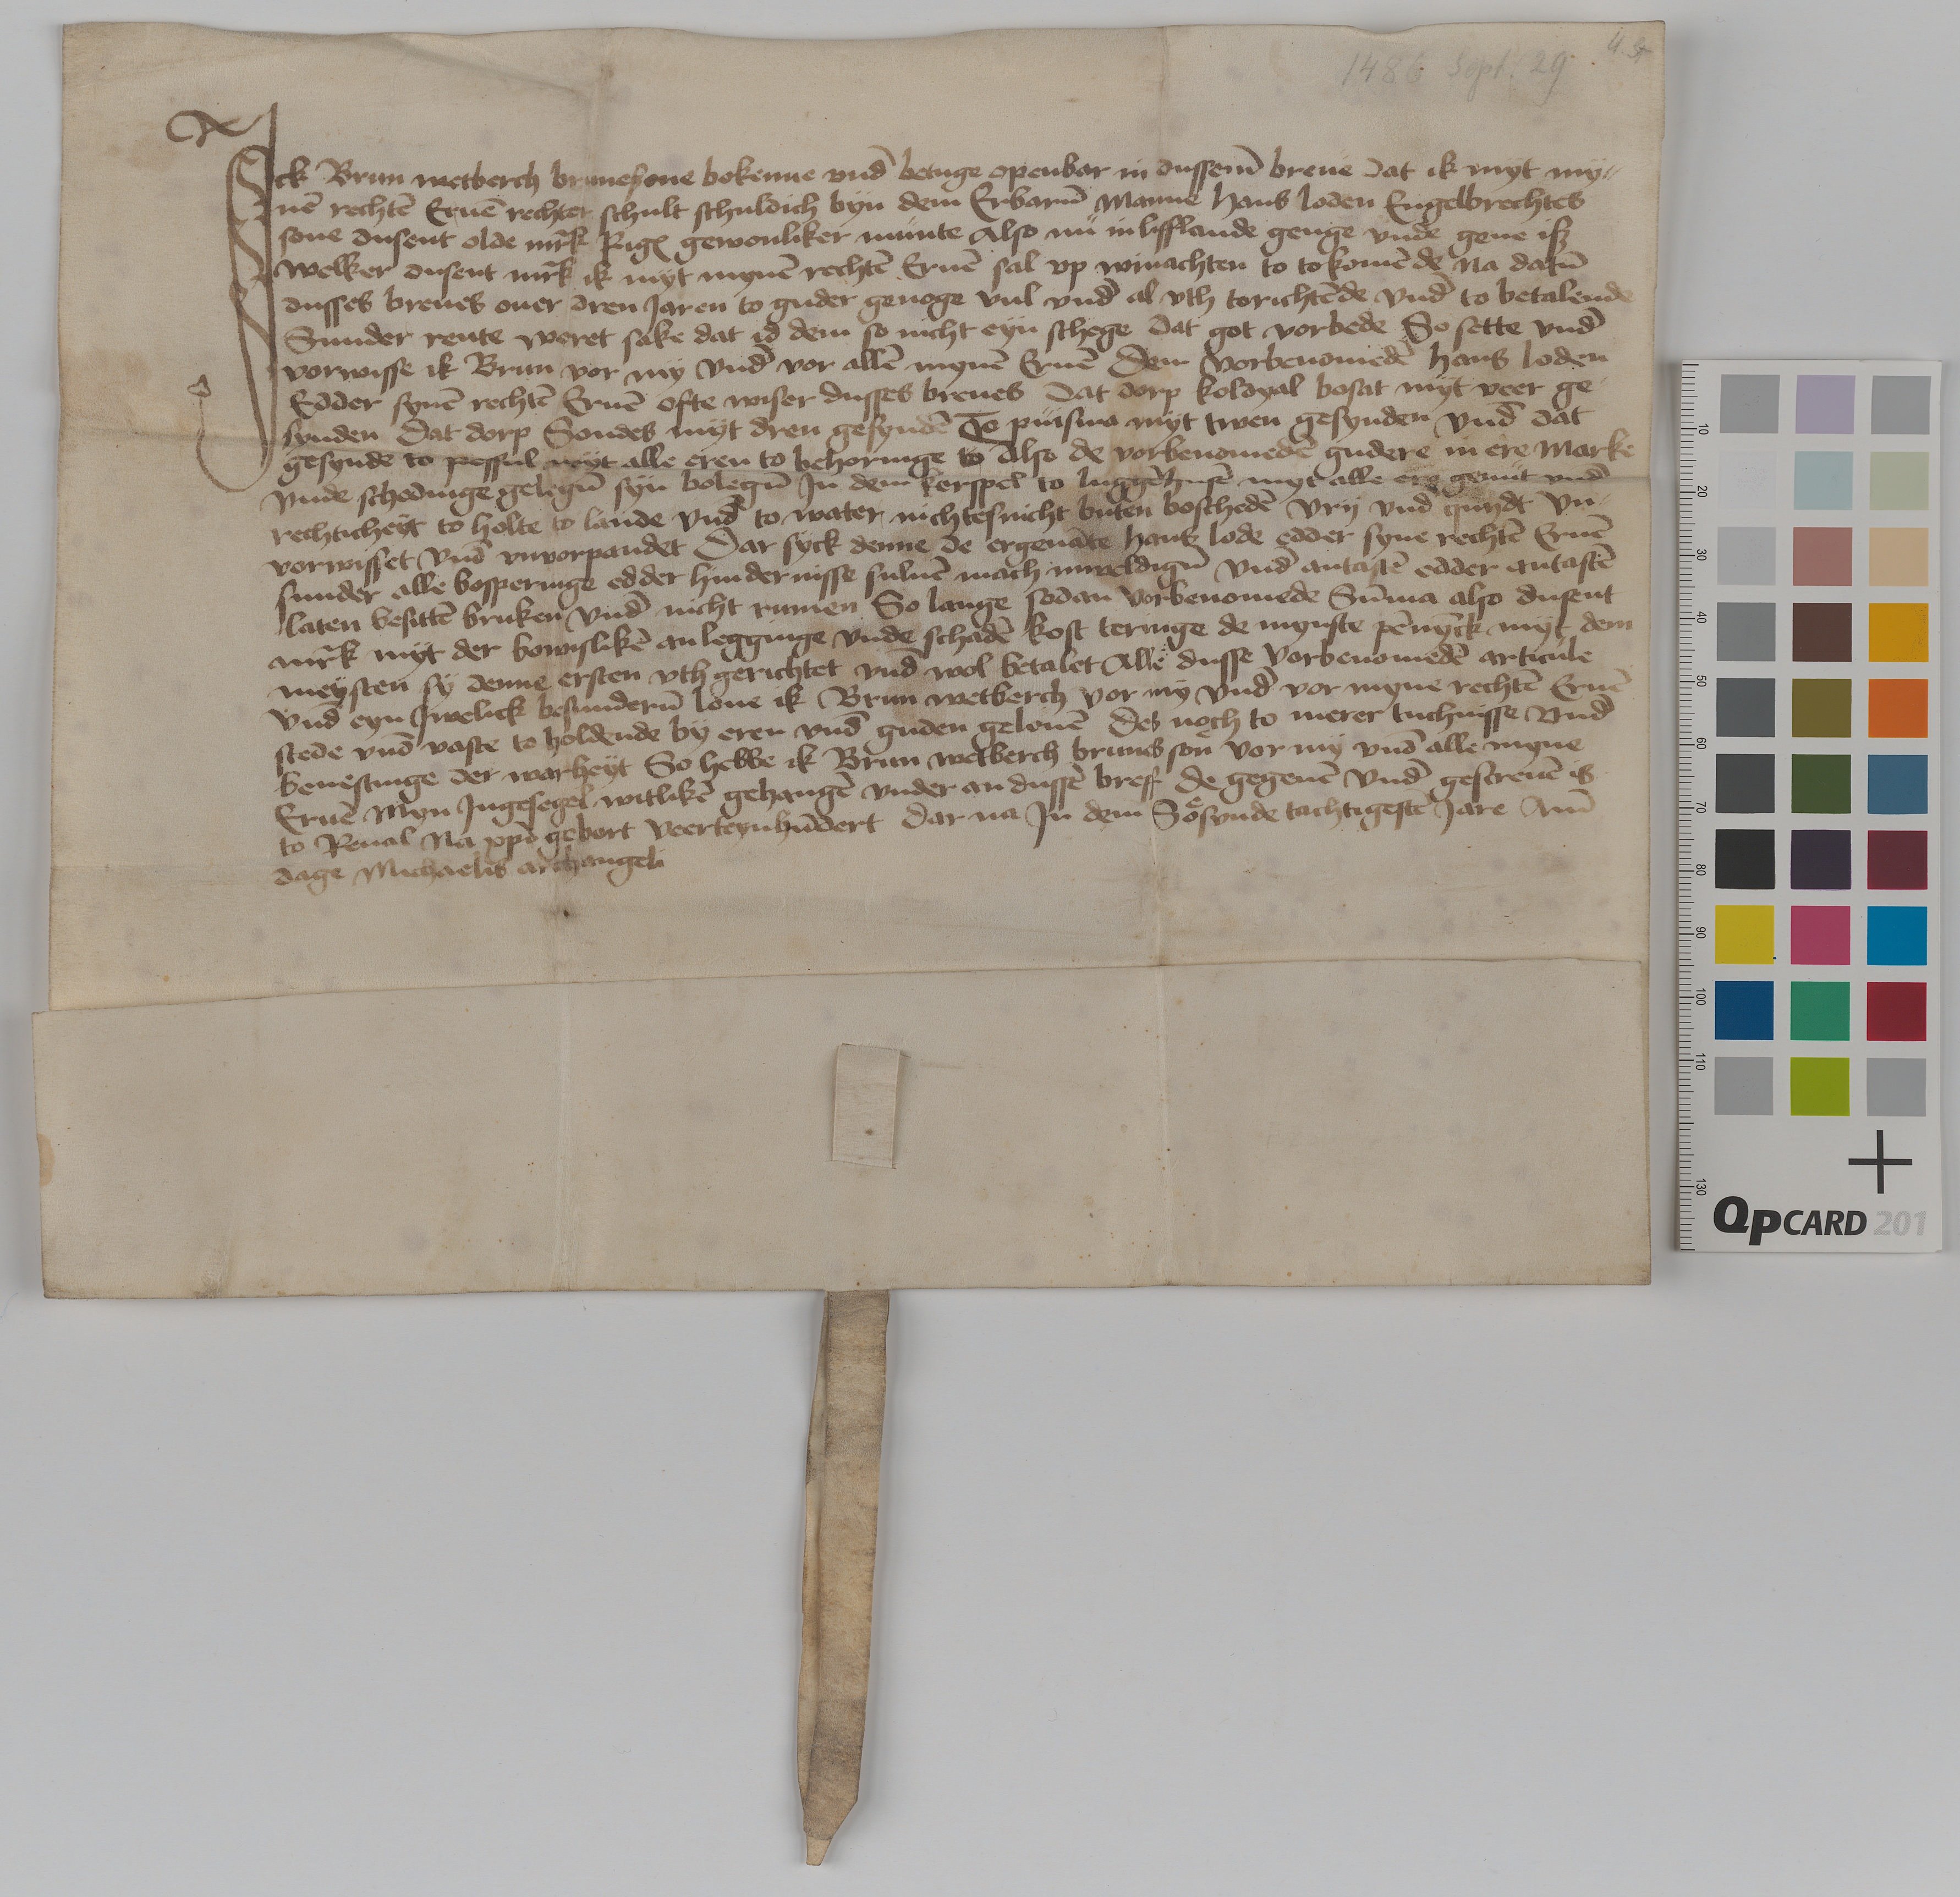 1486 Sept. 29.
Ick Brun wetberch brunes sone bokenne vnd̄ betuge openbar in dussem̄ breue Dat ik myt my-
nē rechtē Eruē rechter schult schuldich byn dem Erbarn̄ Manne hans loden Engelbrechtes
sone dusent olde mr̄k Rig gewonliker munte Also nu in lifflande genge vnde geue isz
welker dusent mr̄k ik myt mynē rechtē Eruē sal vp winachten to tokomēde Na datū
dusses breues ouer dren Jaren to guder genoge vul vnd̄ al vth torichtēde vnd̄ to betalende
Sunder rente weret sake dat id dem so nicht eyn schege Dat got vorbede So sette vnd̄
vorwisse ik Brun vor my vnd̄ vor allē mynē Eruē Dem vorbenomedē hans loden
Edder synē rechtē Eruē ofte wiser dusses breues Dat dorp koldyal bosat myt veer ge
synden Dat dorp Sondes myt dren gesyndē To puisma myt twen gesynden vnd̄ dat
gesynde to pessul myt alle eren to behoringe to Also de vorbenomedē gudere in ere Marke
vnde schedinge gelegn̄ syn bolegn̄ In dem kerspel to luggēhusē myt alle ere genut vnd̄
rechticheyt to holte to lande vnd̄ to water nichtesnicht buten boschedē vry vnd̄ quydt vn-
vorwisset vnd̄ vnvorpandet Dar syck denne de ergenāte hans lode edder syne rechtē Eruē
sunder alle bosperinge edder hindernisse suluē mach inweldign̄ vnd̄ antastē edder antastē
laten besittē bruken vnd̄ nicht rumen So lange sodan vorbenomede Sum̄a also dusent
mr̄k myt der bowislikē an legginge vnde schadē kost teringe de mynste pēnyck myt dem
meysten sy denne ersten vth gerichtet vnd̄ wol betalet Alle dusse vorbenomedē articule
vnd̄ eyn Jwelick besundern̄ loue ik Brun wetberch vor my vnd̄ vor myne rechtē Eruē
stede vnd̄ vaste to holdende by eren vnd̄ guden gelouē Des noch to merer tuchnisse vnd̄
beuestinge der warheyt So hebbe ik Brun wetberch brunes son vor my vnd̄ alle myne
Eruē Myn Ingesegel witlikē gehangē vnder an dussē breff de gegeuē vnd̄ gescreuē is
to Reual Na xpī gebort veerteynhūdert Dar na In dem Sosvnde tachtigestē Jare Am̄
dage Michaelis archangeli
10
20
30
40
50
60
70
80
90
100
110
130
QpCARD 201